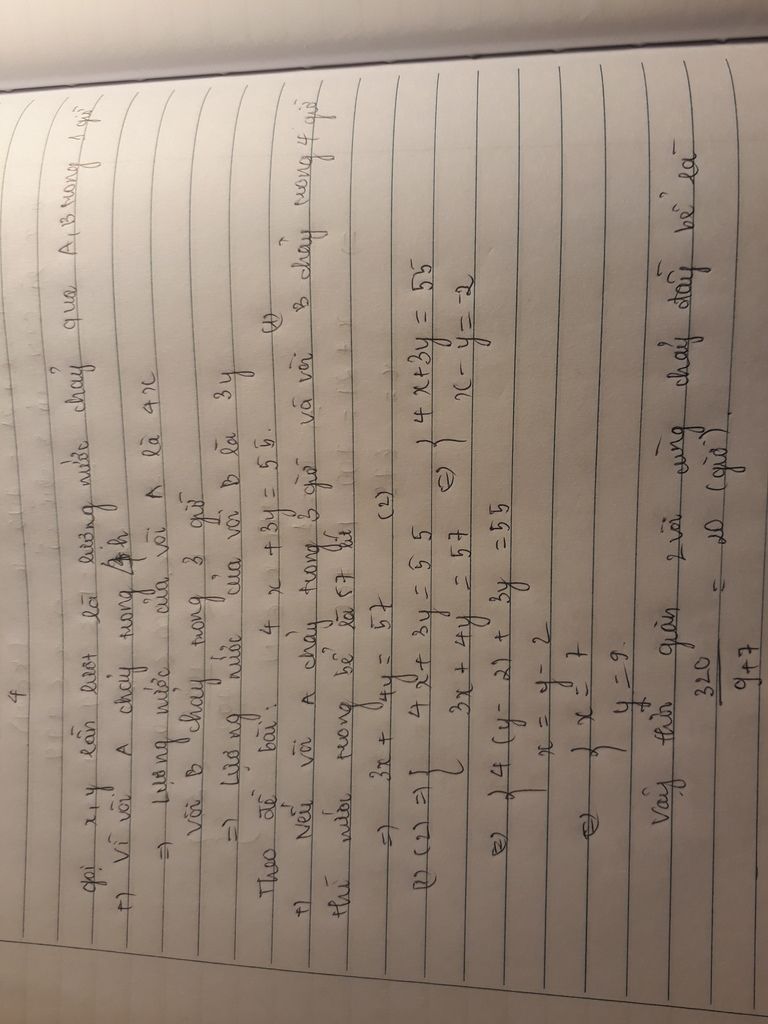 4
gọi x, y lần lượt là lượng nước chảy qua A, B trong 1 giờ
+) Vì vòi A chảy trong 4h
=) Lượng nước của vòi A là 4x
Vòi B chảy trong 3 giờ
=) Lượng nước của vòi B là 3y
Theo đề bài: 4x + 3y = 55. (1)
+) Nếu vòi A chảy trong 3 giờ và vòi B chảy trong 4 giờ
thì nước trong bể là 57 lít
=) 3x + 4y = 57 (2)
(1) (2) =) { 4x + 3y = 55 (=) { 4x + 3y = 55
3x + 4y = 57 x - y = -2
(=) { 4(y - 2) + 3y = 55
x = y - 2
(=) { x = 7
y = 9.
Vậy thời gian 2 vòi cùng chảy đầy bể là
320 / 9+7 = 20 (giờ)